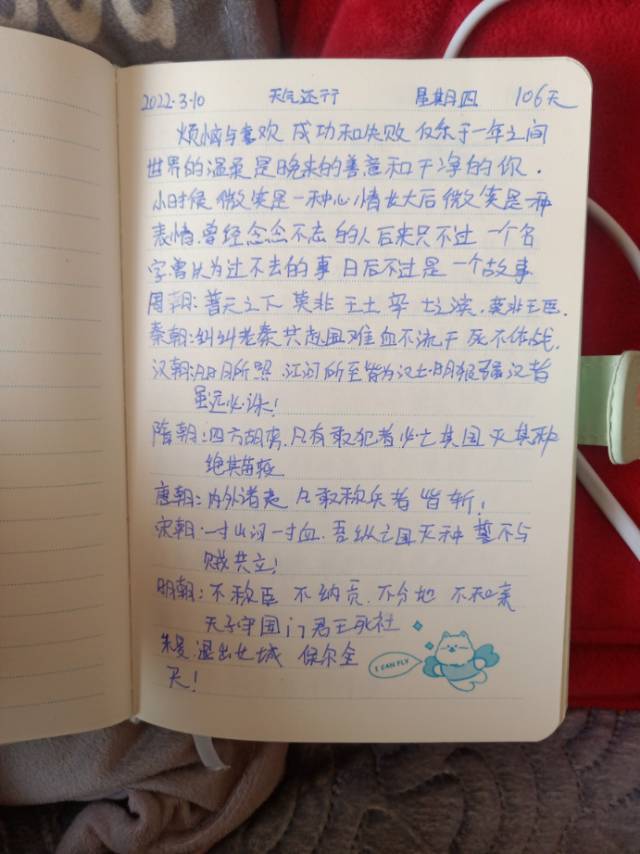 2022.3.10 天气还行 星期四 106天
烦恼与喜欢 成功和失败 仅乐于一年之间
世界的温柔是晚来的善意和干净的你.
小时候 微笑是一种心情 长大后 微笑是一种
表情.曾经念念不忘的人后来只不过一个名
字.曾认为过不去的事 日后不过是一个故事
周朝:普天之下 莫非王土 率土之滨.莫非王臣.
秦朝:纠纠老秦 共赴国难 血不流干 死不休战.
汉朝:明月所照 江河所至皆为汉土.明犯强汉者
虽远必诛!
隋朝:四方胡虏.只有敢犯者必亡其国 灭其种
绝其苗裔
唐朝:内外诸夷 凡敢称兵者 皆斩!
宋朝.一寸山河一寸血.吾纵亡国灭种 誓不与
贼共立!
明朝:不称臣 不纳贡.不分地 不和亲
天子守国门君王死社
退出北城 保尔全
I CAN FLY